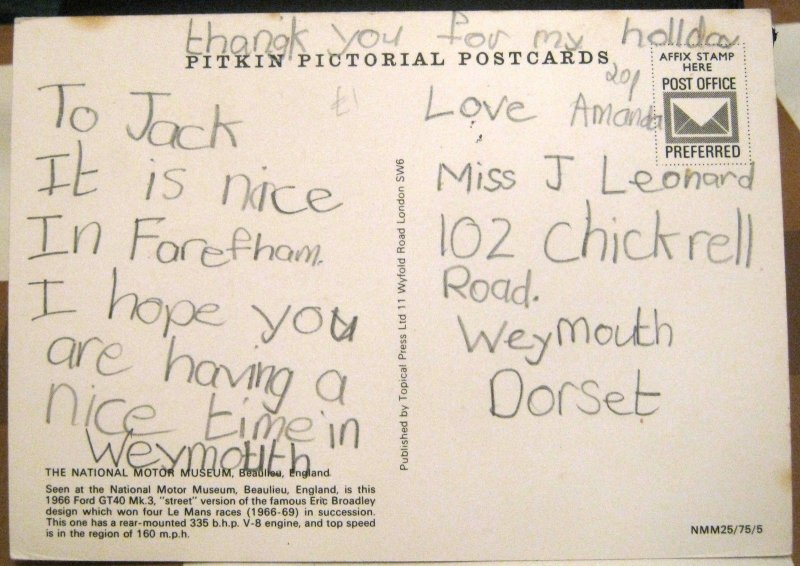 thangk you for my holiday
PITKIN PICTORIAL POSTCARDS
AFFIX STAMP
HERE
POST OFFICE
PREFERRED
20p
£1
To Jack
It is nice
In Farefham.
I hope you
are having a
nice time in
Weymouth
THE NATIONAL MOTOR MUSEUM, Beaulieu, England
Seen at the National Motor Museum, Beaulieu, England, is this
1966 Ford GT40 Mk.3, "street" version of the famous Eric Broadley
design which won four Le Mans races (1966-69) in succession.
This one has a rear-mounted 335 b.h.p. V-8 engine, and top speed
is in the region of 160 m.p.h.
Published by Topical Press Ltd 11 Wyfold Road London SW6
Love Amanda
Miss J Leonard
102 Chickrell
Road.
Weymouth
Dorset
NMM25/75/5